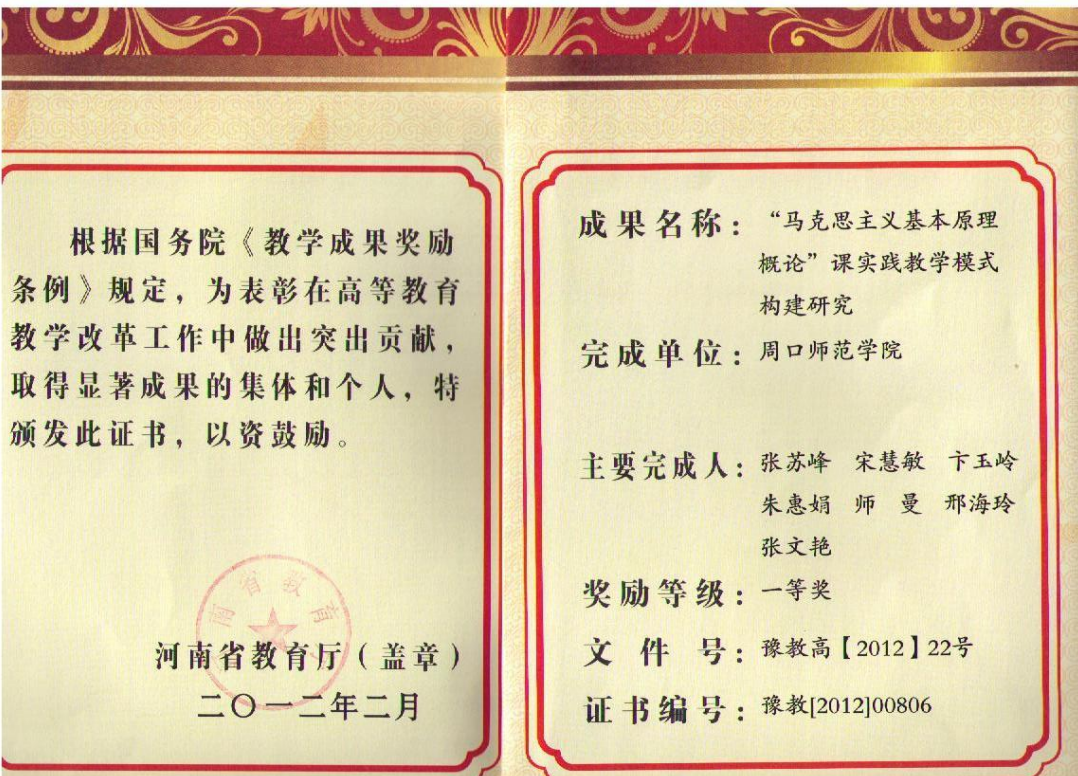 根据国务院《教学成果奖励
条例》规定，为表彰在高等教育
教学改革工作中做出突出贡献，
取得显著成果的集体和个人，特
颁发此证书，以资鼓励。
南省教育
河南省教育厅（盖章）
二〇一二年二月
成果名称：“马克思主义基本原理
概论”课实践教学模式
构建研究
完成单位：周口师范学院
主要完成人：张苏峰 宋慧敏 卞玉岭
朱惠娟 师 曼 邢海玲
张文艳
奖励等级：一等奖
文 件 号：豫教高【2012】22号
证书编号：豫教[2012]00806